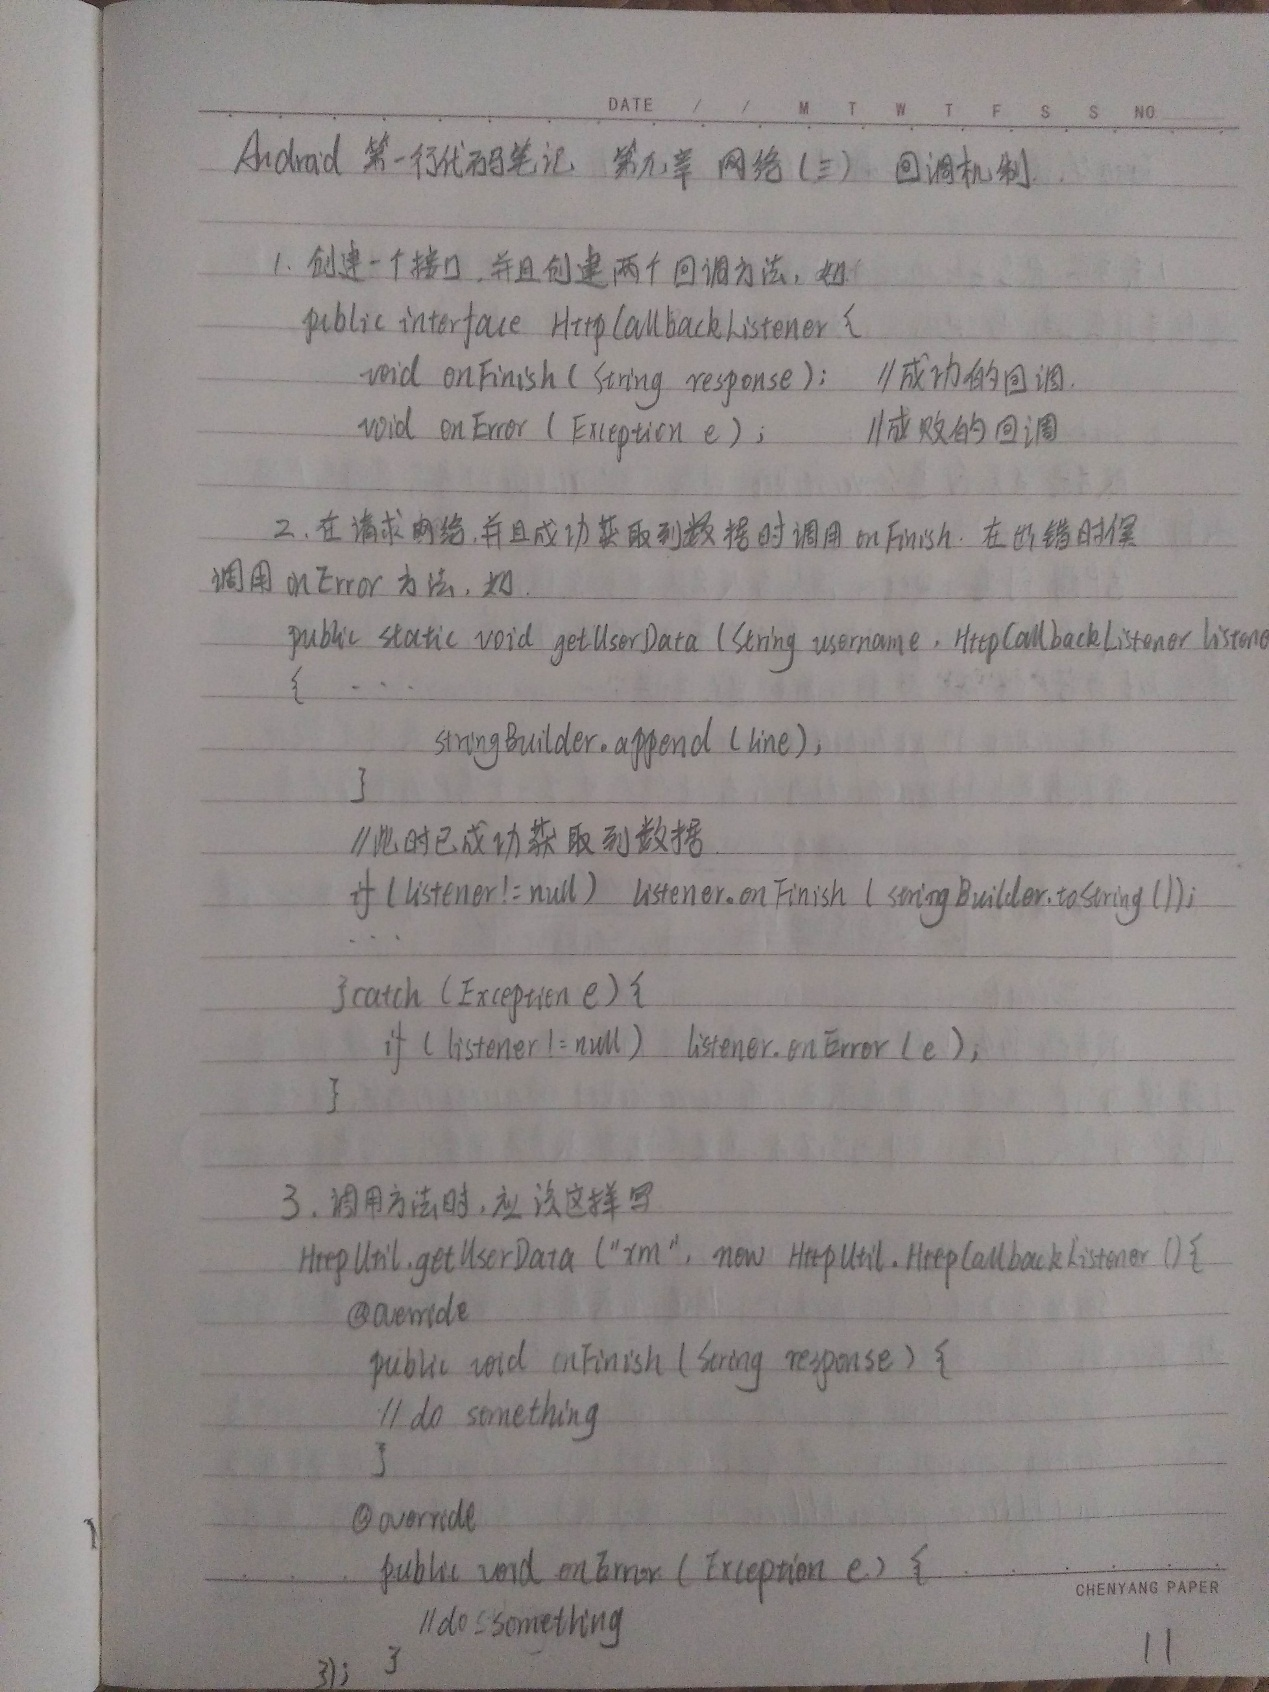 DATE / / M T W T F S S NO
Android 第一行代码笔记 第九章 网络(三) 回调机制.
1. 创建一个接口,并且创建两个回调方法,如
public interface HttpCallbackListener {
void onFinish(String response); //成功的回调.
void onError (Exception e); //成败的回调
2. 在请求网络,并且成功获取到数据时调用onFinish. 在出错时候
调用onError方法,如.
public static void getUserData (String username, HttpCallbackListener listene
{ ...
stringBuilder.append (line);
}
//此时已成功获取到数据
if (listener!=null) listener.onFinish (stringBuilder.toString());
...
}catch (Exception e){
if (listener!=null) listener.onError(e);
}
3. 调用方法时,应该这样写
HttpUtil.getUserData ("xm", new HttpUtil.HttpCallbackListener(){
@override
public void onFinish (String response) {
//do something
}
@override
public void onError (Exception e) {
CHENYANG PAPER
//do something
}
});
11